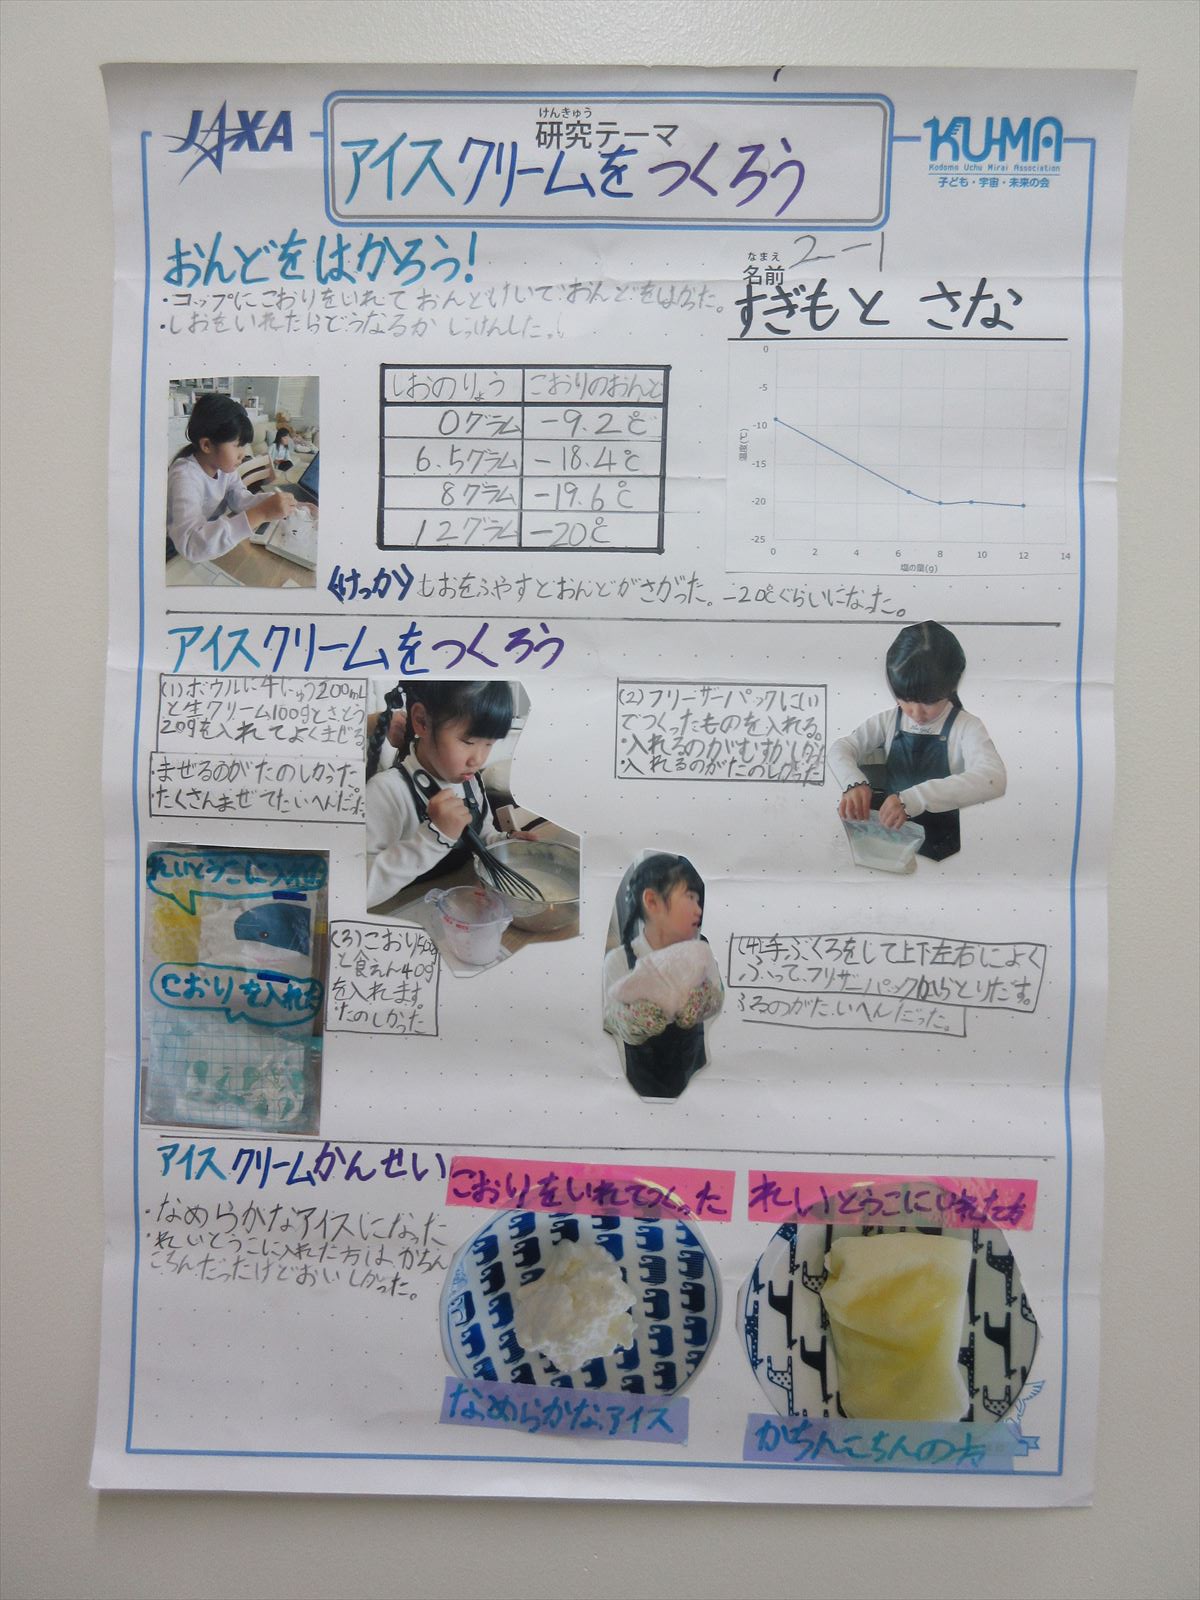 JAXA
けんきゅう
研究テーマ
アイスクリームをつくろう
KU-MA
Kodomo Uchu Mirai Association
子ども・宇宙・未来の会
おんどをはかろう!
・コップにこおりをいれておんどけいでおんどをはかった。
・しおをいれたらどうなるか じっけんした。
なまえ
名前
2-1
すぎもと さな
しおのりょう こおりのおんど
0グラム -9.2℃
6.5グラム -18.4℃
8グラム -19.6℃
12グラム -20℃
0
-5
-10
-15
-20
-25
温度(℃)
0 2 4 6 8 10 12 14
塩の量(g)
《けっか》しおをふやすとおんどがさがった。-20℃ぐらいになった。
アイスクリームをつくろう
(1)ボウルに牛にゅう200mL
と生クリーム100gとさとう
20gを入れてよくまぜる
・まぜるのがたのしかった。
・たくさんまぜてたいへんだった
(2)フリーザーパックに(1)
でつくったものを入れる。
・入れるのがむずかしかった
・入れるのがたのしかった
れいとうこに入れた
こおりを入れた
(3)こおり150g
と食えん40g
を入れます。
たのしかった
(4)手ぶくろをして上下左右によく
ふって、フリーザーパックからとりだす。
ふるのがたいへんだった。
アイスクリームかんせい
・なめらかなアイスになった
・れいとうこに入れた方は、かちん
こちんだったけどおいしかった。
こおりをいれてつくった
なめらかなアイス
れいとうこにいれた方
かちんこちんの方